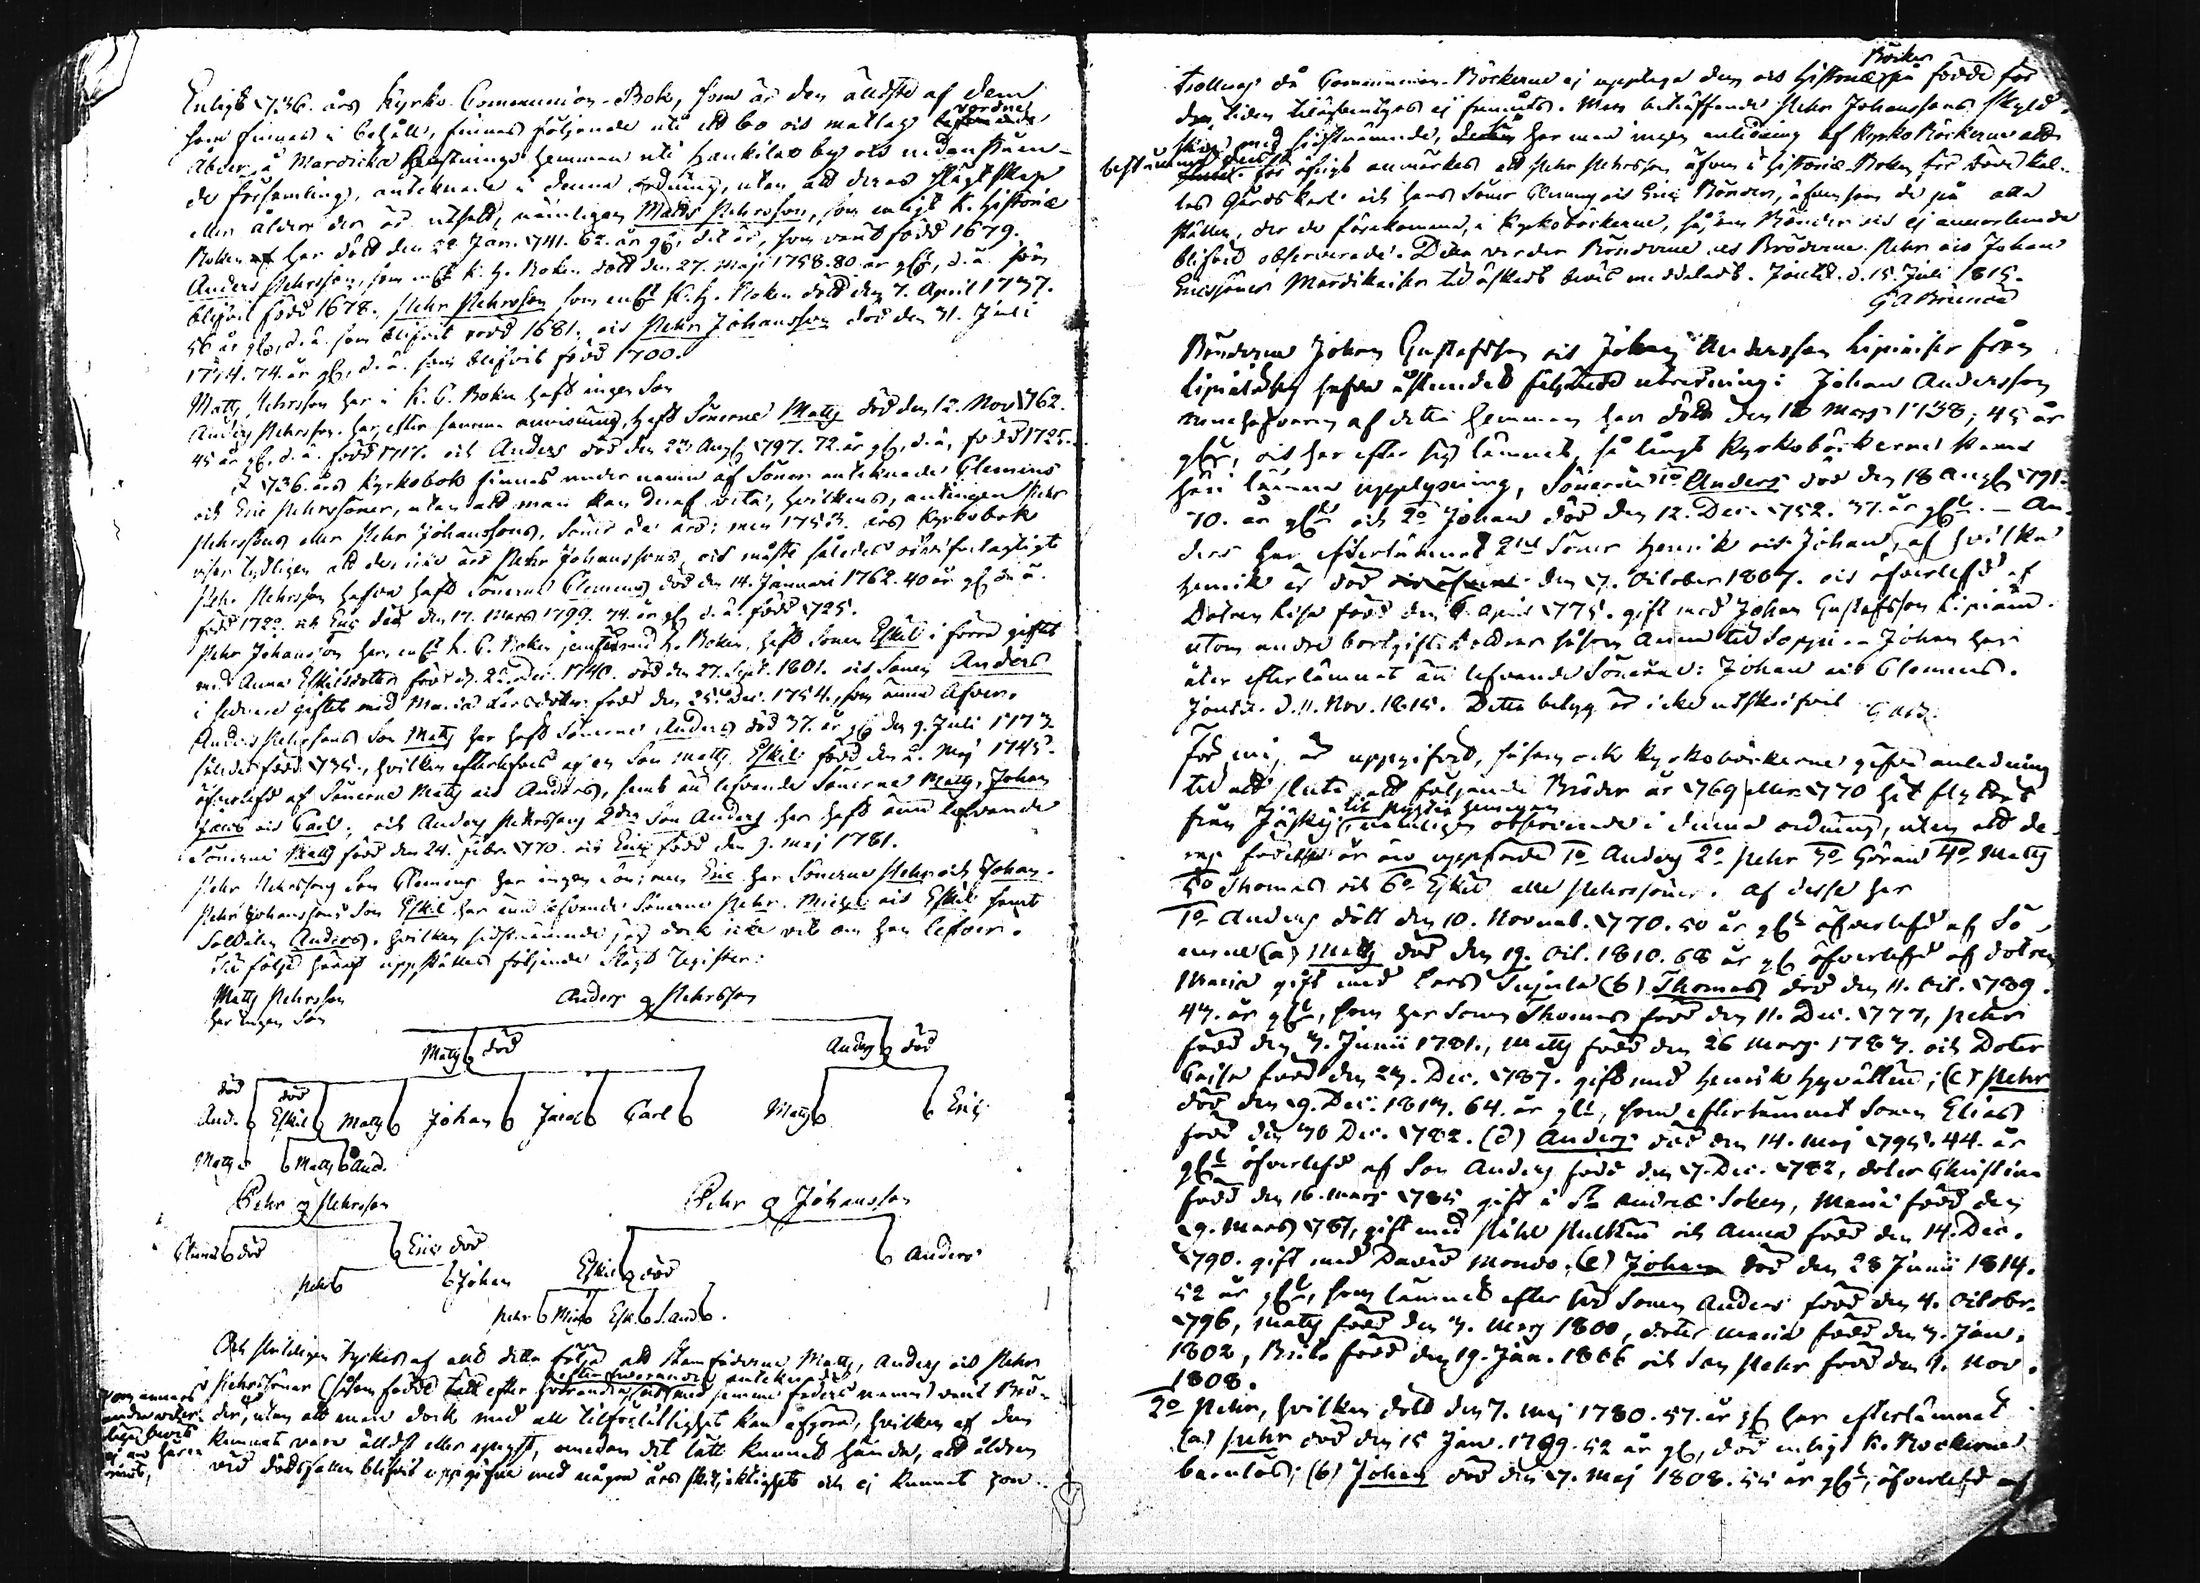 Enligt 1736. års Kyrko-Communion-Bok, som är den äldste af dem
som finnas i behåll, finnas följande uti ett bo och matlag
Åboer å Mardicka hemman uti Hankilax by och
de församling, antecknade i denna ordning, utan att deras slägtskap
eller ålder der är utsatt, nämligen Matts Pehrsson, som enligt K. Historiæ
Boken har dödt den 22 Jan. 1741. 62. år gl, det är, som varit född 1679.
Anders Pehrsson, som enl K. H. Boken dödt den 27. Maji 1758. 80 år gl, d. ä. som
blifvit född 1678. Pehr Pehrsson som enlt K. H. Boken död den 7. April 1737.
56 år gl, d. ä. som blifvit född 1681. och Pehr Johansson död den 31. Juli
1774. 74. år gl, d. ä. som blifvit född 1700.
Matts Pehrsson har i K. C. Boken haft ingen Son
Anders Pehrsson har, efter samma anvisning, haft Sönerne Matts död den 12. Nov 1762.
45 år gl, d. ä. född 1717. och Anders död den 23 Aug 1797. 72. år gl, d. ä. född 1725.
I 1736. års Kyrkobok finnas under namn af Söner antecknade Clemens
och Eric Pehrssöner, utan att man kan deraf veta, hvilkens, antingen Pehr
Pehrssons eller Pehr Johanssons, Söner de äro; men 1753. års Kyrkobok
viser tydligen att de icke äro Pehr Johanssons, och måste således
Pehr Pehrsson hafva haft Sönerne Clemens död den 14. Januari 1762. 40 år gl d. ä.
född 1722. och Eric död den 17. Mars 1799. 74. år gl d. ä. född 1725.
Pehr Johansson har, enlt K. C. Boken jemförd med H. Boken, haft Sonen Eskil i förra giftet
med Anna Eskilsdotter född d. 22. Dec. 1740. död den 27. Sept. 1801. och Sonen Anders
i sednare giftet med Maria Larsdotter född den 25. Dec. 1754, som ännu lefver.
Anders Pehrssons Son Matts har haft Sönerne Anders död 37. år gl den 9. Juli 1773.
således född 1735, hvilken efterlefves af en Son Matts. Eskil född den 2. Maj 1745.
öfverlefd af Sönerne Matts och Anders, samt än lefvande Sönerne Matts, Johan
Jacob och Carl; och Anders Pehrssons 2dra Son Anders har haft ännu lefvande
Sönerne Matts född den 24. Febr. 1770. och Eric född den 9. Maj 1781.
Pehr Pehrssons Son Clemens har ingen son; men Eric har Sönerne Pehr och Johan.
Pehr Johanssons Son Eskil har ännu lefvande Sönerne Pehr, Michel och Eskil samt
Soldaten Anders, hvilken sistnämnde jag dock icke vet om han lefver.
Till följd häraf uppställes följande Slägt Register:
Matts Pehrsson Anders Pehrsson
har ingen Son
Matts död Anders död
död död
And. Eskil Matts Johan Jacob Carl Matts Eric
Matts Matts And.
Pehr Pehrsson Pehr Johansson
Clemes död Eric död Eskil död Anders
Pehr Johan
Pehr Mich Esk. S. And.
Och skulle af allt detta följa att Stamfäderne Matts, Anders och Pehr
Pehrssöner (såsom födde tätt efter hvarandra och med samma faders namn) varit Brö-
der, utan att man dock med all tilförlitlighet kan afgöra, hvilken af dem
kunnat vara äldst eller yngst, emedan det lätt kunnat hända, att åldren
vid dödsfallen blifvit uppgifven med någon års skiljaktighet och ej kunnat con-
Böcker
trolleras då Communion-Böckerne ej upptaga dem och Historiæ på födde för
den tiden ej funnits. Men beträffande Pehr Johanssons skyld-
skap med sistnämnde, har man ingen anledning af KyrkoBöckerne att
bestämma. För öfrigt anmärkes att Pehr Pehrsson äfven i Historiæ-Boken för döde kal-
las Gårdskarl och hans Söner Clemens och Eric Bönder, äfvensom de på alla
ställen, der de förekomma, i Kyrkoböckerne, såsom Bönder och ej annorlunda
blifvit observerade. Detta varder Bönderne och Bröderne Pehr och Johan
Ericssöner Mardikaiser til äskadt bevis meddeladt. d. 15. Juli 1815.
Bönderne Johan Gustafsson och Johan Andersson Lipiäiser från
hafva åstundat följande utredning: Johan Andersson
innehafvaren af detta hemman har dödt den 18 Mars 1738, 45 år
gl, och har efter sig lämnat, så långt Kyrkoböckerne kunna
häri lämna upplysning, Sönerne 1o Anders död den 18 Aug 1791.
70. år gl och 2o Johan död den 12. Dec. 1752. 37. år gl. – An-
ders har efterlämnat 2ne Söner Henrik och Johan, af hvilka
Henrik är död den 7. October 1807. och öfverlefd af
Dotren Lisa född den 6. April 1775. gift med Johan Gustafsson Lipiäin
utom andre bortgifte döttrar såsom Anna til Soppi. – Johan har
åter efterlämnat än lefvande Sönerne: Johan och Clemens.
d. 11. Nov. 1815. Detta belyg är icke utskrifvit
För mig är uppgifvet, såsom ock Kyrkoböckerne gifva anledning
til att sluta, att följande Bröder år 1769 eller 1770 hit flyttat
från Jäskis, nämligen observerade i denna ordning, utan att de-
ras är uppförde 1o Anders 2o Pehr 3o Göran 4o Matts
5o Thomas och 6o Eskil alle Pehrssöner. af desse har
1o Anders dödt den 10. Novemb. 1770. 50 år gl öfverlefd af Sö-
nerne (a) Matts död den 19. Oct. 1810. 68 år gl öfverlefd af dotren
Maria gift med Lars (b) Thomas död den 11. Oct. 1789.
47. år gl, som har Sonen Thomas född den 11. Dec. 1777, Pehr
född den 7. Junii 1781., Matts född den 26 Mars 1787. och Doter
Caisa född den 27. Dec. 1787. gift med Henrik; (c) Pehr
död den 9. Dec. 1813. 64. år gl, som efterlämnat Sonen Elias
född den 30 Dec. 1782. (d) Anders död den 14. Maj 1795. 44. år
gl öfverlefd af Son Anders född den 7. Dec. 1782, doter Christina
född den 16. Mars 1785 gift i St. Andreæ Soken, Maria född den
9. Mars 1787, gift med och Anna född den 14. Dec.
1790. gift med David Mondo. (e) Johan död den 28 Junii 1814.
52 år gl, som lämnat efter sig Sonen Anders född den 4. Octobr.
1796, Matts född den 7. Mars 1800, doter Maria född den 7. Jan.
1802, Brita född den 19. Jan. 1806 och Son Pehr född den 9. Nov.
1808.
2o Pehr, hvilken dödt den 7. Maj 1780. 57. år gl har efterlämnat
(a) Pehr död den 15 Jan. 1799. 52 år gl, död enligt K. Böckerne
barnlös; (b) Johan död den 7. Maj 1808. 55 år gl, öfverlefd af